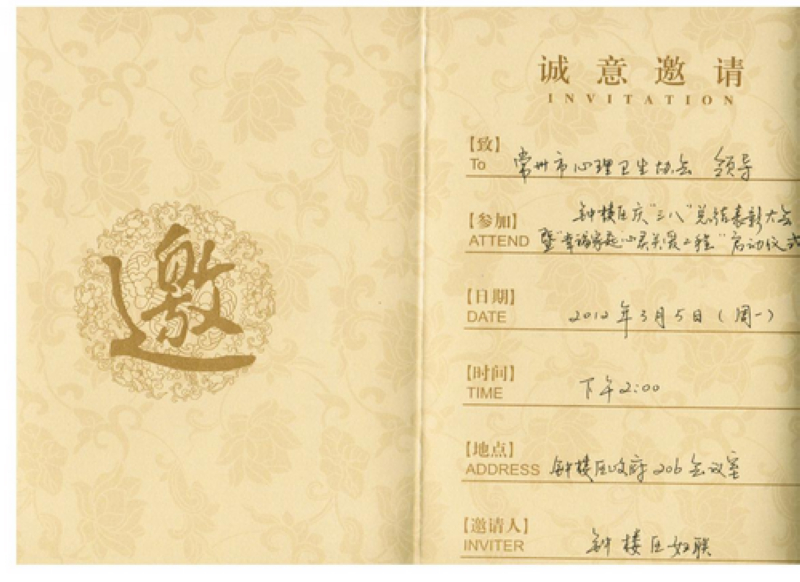 邀
诚意邀请
INVITATION
【致】
To 常州市心理卫生协会 领导
【参加】 钟楼区庆“三八”总结表彰大会
ATTEND 暨“幸福家庭心灵关爱工程”启动仪式
【日期】
DATE 2012年3月5日(周一)
【时间】
TIME 下午2:00
【地点】
ADDRESS 钟楼区政府206会议室
【邀请人】
INVITER 钟楼区妇联